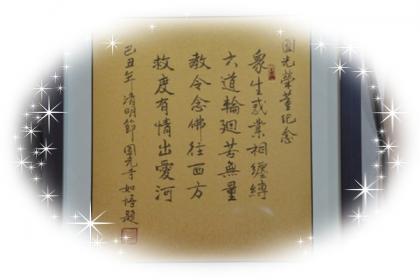 圓光榮董紀念
衆生惑業相纏縛
六道輪迴苦無量
教令念佛往西方
救度有情出愛河
己丑年清明節圓光寺如悟題